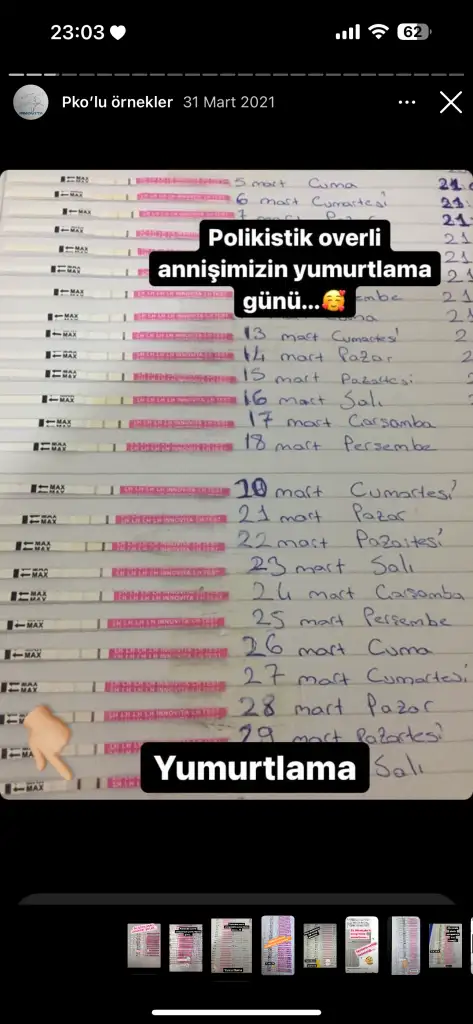 23:03
62
Pko'lu örnekler 31 Mart 2021
5 mart Cuma 21
6 mart Cumartesi 21
Pazar 21
21
Polikistik overli
annişimizin yumurtlama
günü...🥰
21
21
embe 21
ma 21
13 mart Cumartesi 2
14 mart Pazar
15 mart Pazartesi
16 mart Salı
17 mart Çarşamba
18 mart Perşembe
20 mart Cumartesi
21 mart Pazar
22 mart Pazartesi
23 mart Salı
24 mart Carsamba
25 mart Persembe
26 mart Cuma
27 mart Cumartesi
28 mart Pazar
29 mart Pazartesi
Yumurtlama
Salı
MAX
LH LH LH LH INNOVITA LH TEST